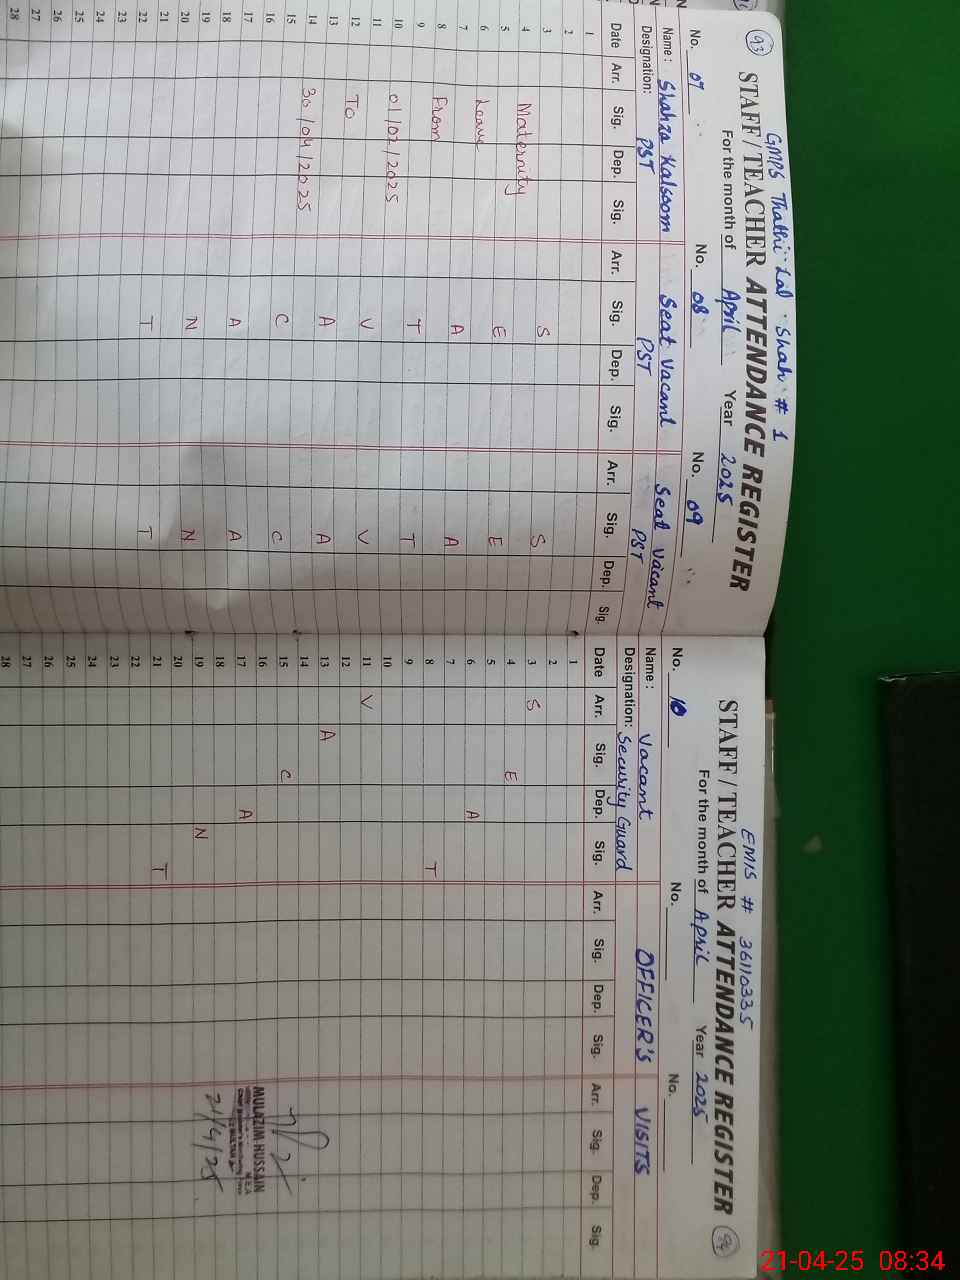 93
GMPS Thathi Lal Shah # 1
STAFF / TEACHER ATTENDANCE REGISTER
For the month of April Year 2025
No. 07 No. 08 No. 09
Name: Shahza Kalsoom Seat Vacant Seat Vacant
Designation: PST PST PST
Date Arr. Sig. Dep. Sig. Arr. Sig. Dep. Sig. Arr. Sig. Dep. Sig.
1
2
3 S S
4 Maternity
5 E E
6 Leave
7 A A
8 From
9 T T
10 01/02/2025
11 V V
12 To
13 A A
14 30/04/2025
15 C C
16
17
18 A A
19
20 N N
21
22 T T
23
24
25
26
27
28
EMIS # 36110335
STAFF / TEACHER ATTENDANCE REGISTER 94
For the month of April Year 2025
No. 10 No. No.
Name: Vacant OFFICER'S VISITS
Designation: Security Guard
Date Arr. Sig. Dep. Sig. Arr. Sig. Dep. Sig. Arr. Sig. Dep. Sig.
1
2
3 S
4 E
5
6 A
7
8 T
9
10
11 V
12
13 A
14
15 C
16 MULAZIM HUSSAIN
17 A M.E.A
18 21/4/25
19 N
20
21 T
22
23
24
25
26
27
28
21-04-25 08:34